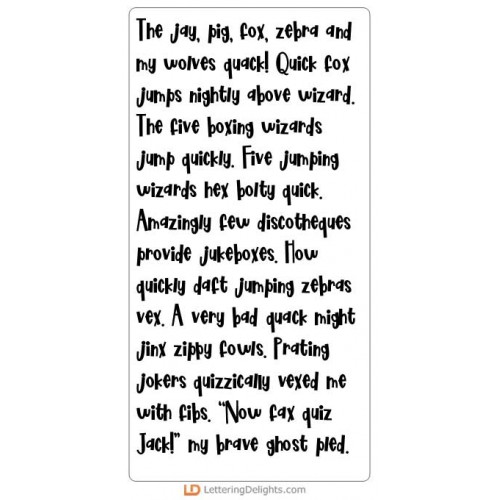 The jay, pig, fox, zebra and
my wolves quack! Quick fox
jumps nightly above wizard.
The five boxing wizards
jump quickly. Five jumping
wizards hex bolty quick.
Amazingly few discotheques
provide jukeboxes. How
quickly daft jumping zebras
vex. A very bad quack might
jinx zippy fowls. Prating
jokers quizzically vexed me
with fibs. "Now fax quiz
Jack!" my brave ghost pled.
LD LetteringDelights.com